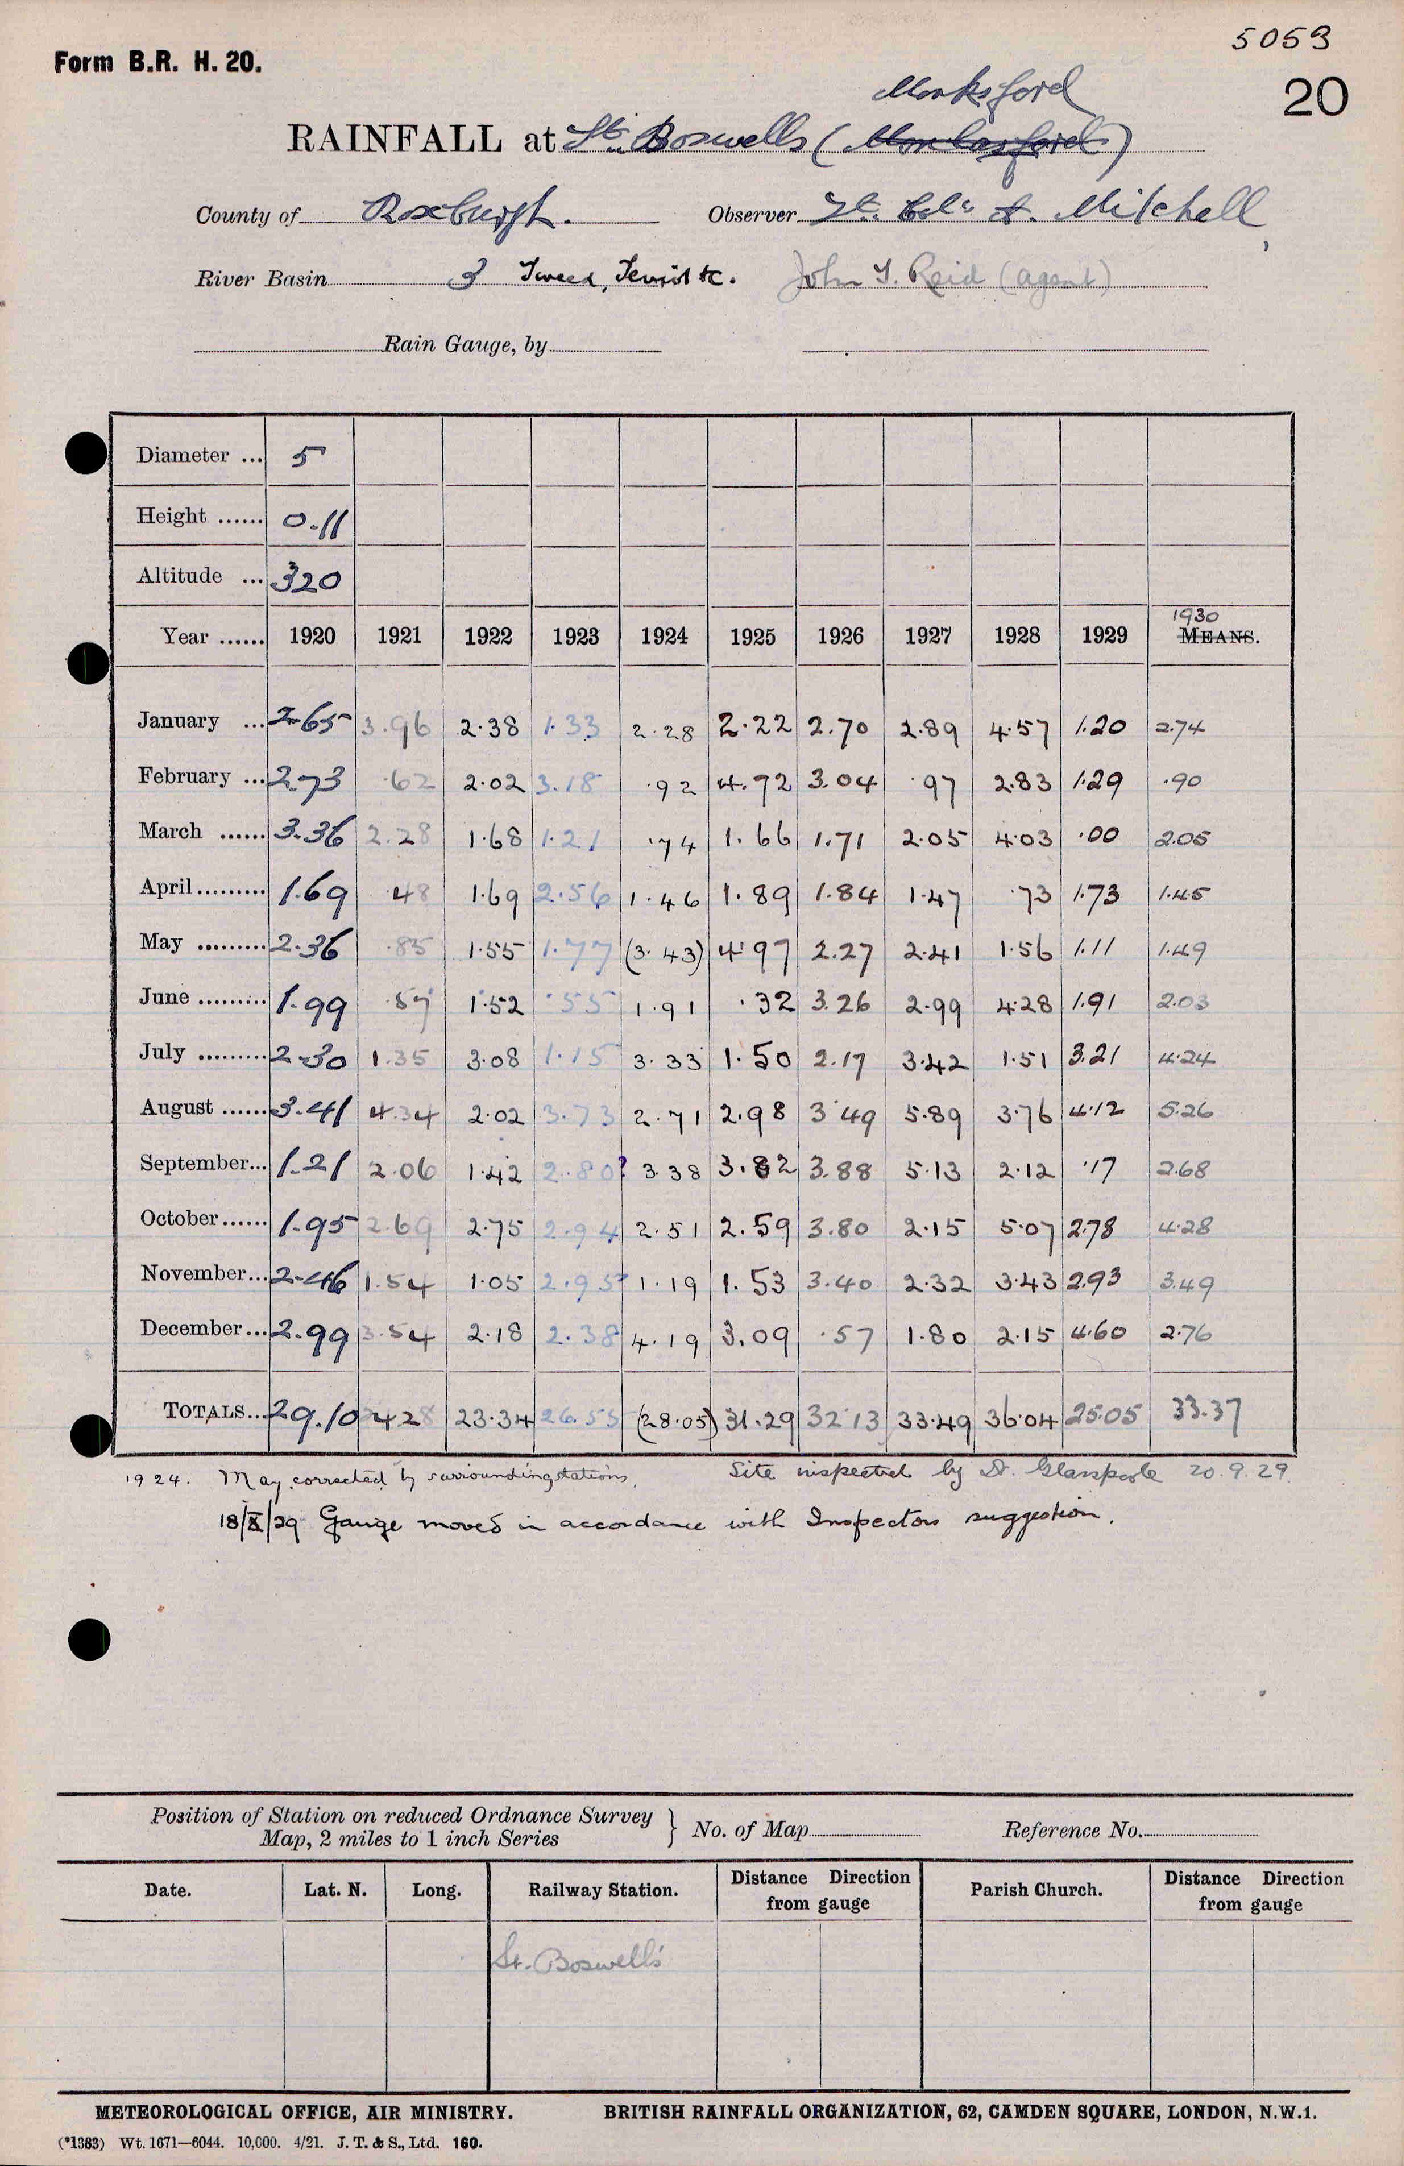 5053
Form B.R. H. 20.
20
Monksford
RAINFALL at St. Boswells (Monksford)
County of Roxburgh. Observer Lt. Col. A. Mitchell,
River Basin 3 Tweed, Teviot &c. John T. Reid (agent)
Rain Gauge, by
Diameter ... 5
Height ...... 0-11
Altitude ... 320
1930
Year ...... 1920 1921 1922 1923 1924 1925 1926 1927 1928 1929 MEANS.
January ... 2.65 3.96 2.38 1.33 2.28 2.22 2.70 2.89 4.57 1.20 2.74
February ... 2.73 .62 2.02 3.18 .92 4.72 3.04 .97 2.83 1.29 .90
March ...... 3.36 2.28 1.68 1.21 .74 1.66 1.71 2.05 4.03 .00 2.05
April ......... 1.69 .48 1.69 2.56 1.46 1.89 1.84 1.47 .73 1.73 1.45
May ......... 2.36 .85 1.55 1.77 (3.43) 4.97 2.27 2.41 1.56 1.11 1.49
June ......... 1.99 .57 1.52 .55 1.91 .32 3.26 2.99 4.28 1.91 2.03
July ......... 2.30 1.35 3.08 1.15 3.33 1.50 2.17 3.42 1.51 3.21 4.24
August ...... 3.41 4.34 2.02 3.73 2.71 2.98 3.49 5.89 3.76 4.12 5.26
September... 1.21 2.06 1.42 2.80? 3.38 3.82 3.88 5.13 2.12 .17 2.68
October...... 1.95 2.69 2.75 2.94 2.51 2.59 3.80 2.15 5.07 2.78 4.28
November... 2.46 1.54 1.05 2.95? 1.19 1.53 3.40 2.32 3.43 2.93 3.49
December... 2.99 3.54 2.18 2.38 4.19 3.09 .57 1.80 2.15 4.60 2.76
TOTALS... 29.10 24.28 23.34 26.55 (28.05) 31.29 32.13 33.49 36.04 25.05 33.37
1924. May corrected by surrounding stations. Site inspected by Dr. Glasspoole 20.9.29.
18/X/29 Gauge moved in accordance with Inspectors suggestion.
Position of Station on reduced Ordnance Survey
Map, 2 miles to 1 inch Series } No. of Map Reference No.
Date. Lat. N. Long. Railway Station. Distance Direction from gauge Parish Church. Distance Direction from gauge
St. Boswell's
METEOROLOGICAL OFFICE, AIR MINISTRY. BRITISH RAINFALL ORGANIZATION, 62, CAMDEN SQUARE, LONDON, N.W.1.
(*1383) Wt. 1671—6044. 10,000. 4/21. J. T. & S., Ltd. 160.